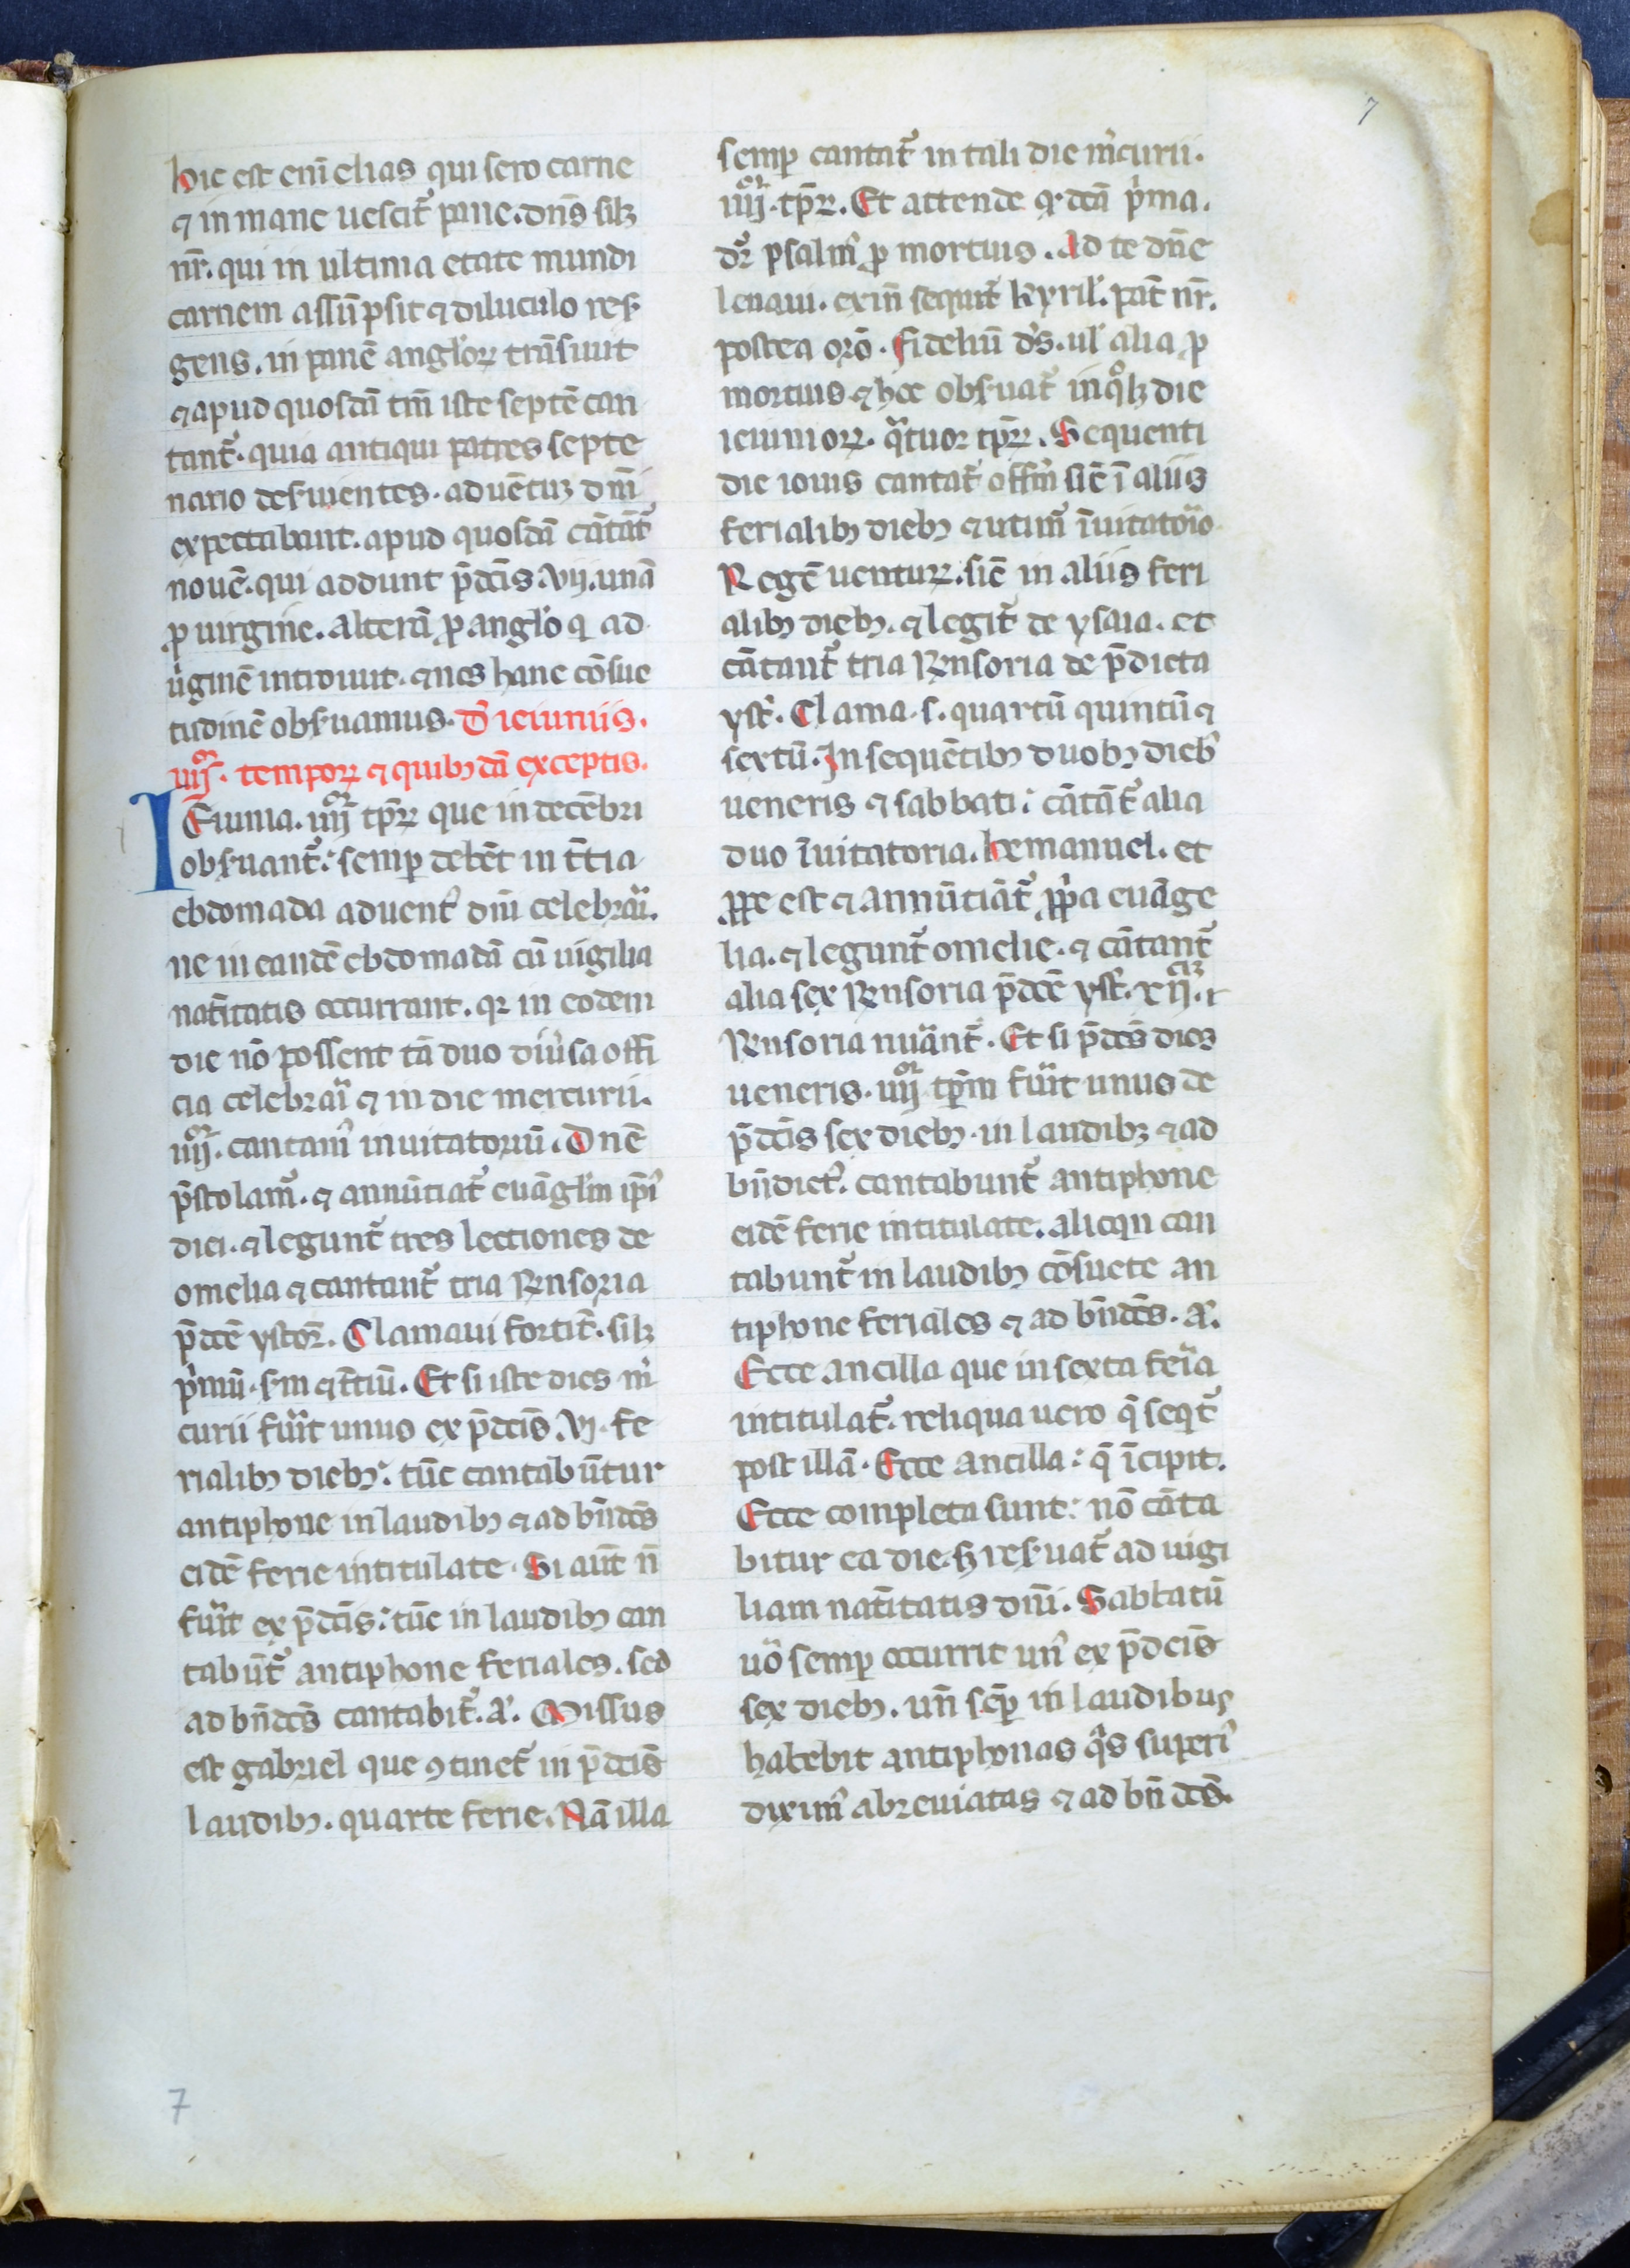 7
hic est eni̅ elias qui sero carne
⁊ in mane uescit᷑ pane. dn̅s silꝫ
nr̅. qui in ultima etate mundi
carnem assu̅psit ⁊ diluculo resꝰ
gens. in pane̅ angl'oꝝ tra̅siuit
⁊ apud quosda̅ tm̅ iste septe̅ can
tant᷑. quia antiqui patres septe
nario deẜuientes. aduentuꝫ dn̅i
expectabant. apud quosda̅ ca̅ta̅t᷑
noue̅. qui addunt p̅dc̅is. vij. una̅
ꝓ uirgine. altera̅ ꝓ angl'o q̇ ad
u'gine̅ introiuit. ⁊ nos hanc co̅sue
tudine̅ obẜuamus. D' ieiuniis.
iiijͦʳ. tempoꝝ ⁊ quibꝫda̅ exceptis.
IEiunia. iiijͦʳ tp̅ꝝ que in dece̅bri
obẜuant᷑: semꝑ debe̅t in t̅tia
ebdomada aduent' dn̅i celebra'i.
ne in eande̅ ebdomada̅ cu̅ uigilia
natiuitatis occurrant. qꝛ in eodem
die no̅ possent ta̅ duo diu'sa offi
cia celebra'i ⁊ in die mercurii.
iiijͦʳ. cantamꝰ inuitatoriu̅. Dne̅
p̅stolam᷑. ⁊ annu̅tiat᷑ eua̅gl'm ip̅i'
diei. ⁊ legunt᷑ tres lectiones de
omelia ⁊ cantant᷑ tria Rn̅soria
p̅dc̅e ystor̅. Clamaui fortit᷑. silꝫ
p'mu̅. s̅m ⁊ t̅tiu̅. Et si iste dies m'
curii fu'it unus ex p̅dc̅is. vj. fe
rialibꝫ diebꝫ: tu̅c cantabu̅tur
antiphone in laudibꝫ ⁊ ad bn̅dc̅s
eide̅ ferie intitulate. Si aut̅ n̅
fu'it ex p̅dc̅is: tu̅c in laudibꝫ can
tabu̅t᷑ antiphone feriales. sed
ad bn̅dc̅s cantabit᷑. a̅. Missus
est gabriel que ꝯtinet᷑ in p̅dc̅is
laudibꝫ. quarte ferie. Na̅ illa
semꝑ cantat᷑ in tali die m'curii.
iiijͦʳ. tp̅ꝝ. Et attende ꝙ dc̅a p'ma.
dr̅ psalm' ꝓ mortuis. Ad te dn̅e
leuaui. exin̅ sequit᷑ kyriel'. pat̅ nr̅.
postea oro̅. fideliu̅ d's. ul' alia ꝓ
mortuis ⁊ hoc obẜuat᷑ in qͦlꝫ die
ieiunioꝝ. qᵃtuor tp̅ꝝ. Sequenti
die iouis cantat᷑ offm̅ sic̅ i̅ aliis
ferialibꝫ diebꝫ ⁊ utim᷑ i̅uitato'io
Rege̅ uentuꝝ. sic̅ in aliis feri
alibꝫ diebꝫ. ⁊ legit᷑ de ysaia. et
ca̅tant᷑ tria Rn̅soria de p̅dicta
yst'. Clama. s. quartu̅ quintu̅ ⁊
sextu̅. In seque̅tibꝫ duobꝫ dieb'
ueneris ⁊ sabbati: ca̅ta̅t᷑ alia
duo i̅uitatoria. hemanuel. et
ꝓpe est ⁊ annu̅tia̅t᷑ ꝓp'a eua̅ge
lia. ⁊ legunt᷑ omelie. ⁊ ca̅tant᷑
alia sex Rn̅soria p̅dc̅e yst'. xij.
Rn̅soria nu'ant᷑. Et si p̅dc̅s dies
ueneris. iiijͦʳ tp̅m fu'it unus de
p̅dc̅is sex diebꝫ. in laudibꝫ ⁊ ad
bn̅dict'. cantabunt᷑ antiphone
eide̅ ferie intitulate. alioqn can
tabunt᷑ in laudibꝫ co̅suete an
tiphone feriales ⁊ ad bn̅dc̅s. a̅.
Ecce ancilla que in sexta fe'ia
intitulat᷑. reliqua uero q̅ seqt᷑
post illa̅. Ecce ancilla: q̅ i̅cipit.
Ecce completa sunt: no̅ ca̅ta
bitur ea die. ꜩ reẜuat᷑ ad uigi
liam natiuitatis dn̅i. Sabbatu̅
uͦ semꝑ occurrit un' ex p̅dc̅is
sex diebꝫ. un̅ se̅ꝑ in laudibus
habebit antiphonas qᵃs superi'
dixim' abreuiatas ⁊ ad bn̅dc̅s.
7